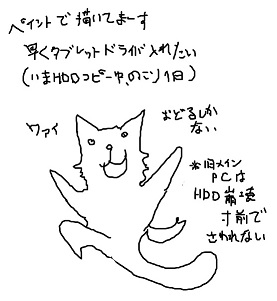 ペイントで描いてまーす
早くタブレットドライバ入れたい
(いまHDDコピー中、のこり1日)
ワァイ
おどるしか
ない
*旧メイン
PCは
HDD崩壊
寸前で
さわれない